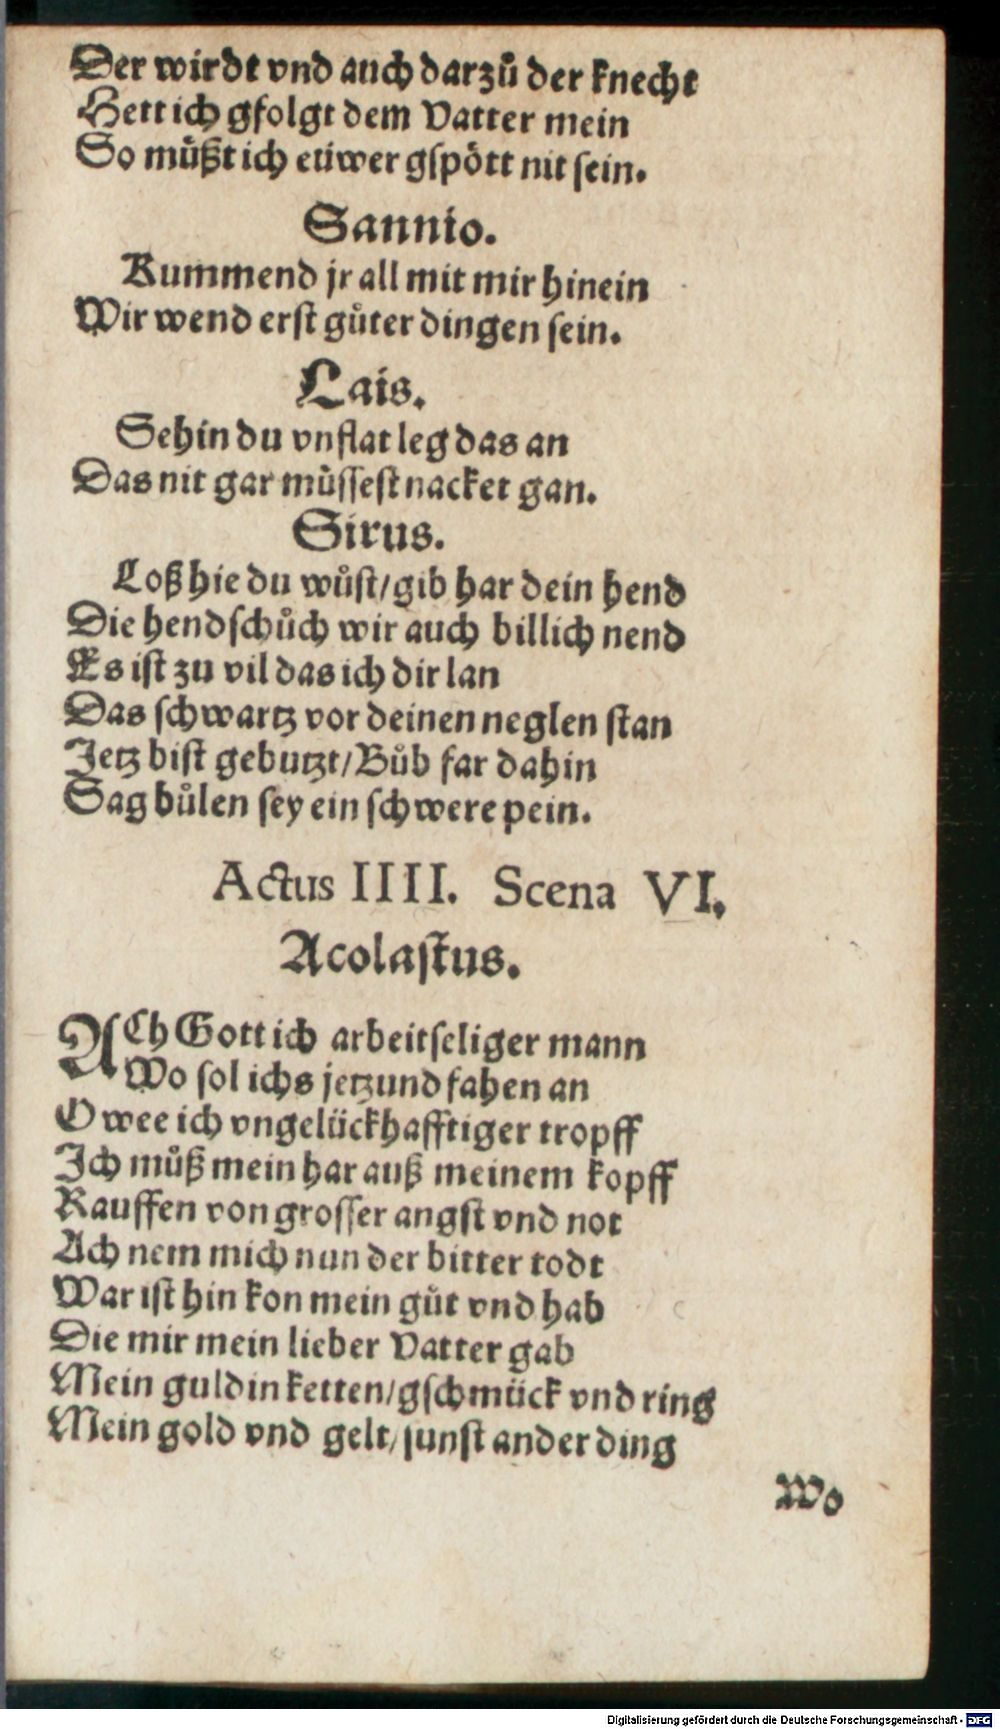 Der wirdt vnd auch darzů der knecht
Hett ich gfolgt dem Vatter mein
So můßt ich eüwer gspött nit sein.
Sannio.
Kummend jr all mit mir hinein
Wir wend erst gůter dingen sein.
Lais.
Sehin du vnflat leg das an
Das nit gar müssest nacket gan.
Sirus.
Loß hie du wůst/gib har dein hend
Die hendschůch wir auch billich nend
Es ist zu vil das ich dir lan
Das schwartz vor deinen neglen stan
Jetz bist gebutzt/Bůb far dahin
Sag bůlen sey ein schwere pein.
Actus IIII. Scena VI.
Acolastus.
ACh Gott ich arbeitseliger mann
Wo sol ichs jetzund fahen an
O wee ich vngelückhafftiger tropff
Ich můß mein har auß meinem kopff
Rauffen von grosser angst vnd not
Ach nem mich nun der bitter todt
War ist hin kon mein gůt vnd hab
Die mir mein lieber Vatter gab
Mein guldin ketten/gschmück vnd ring
Mein gold vnd gelt/sunst ander ding
Wo
Digitalisierung gefördert durch die Deutsche Forschungsgemeinschaft - DFG